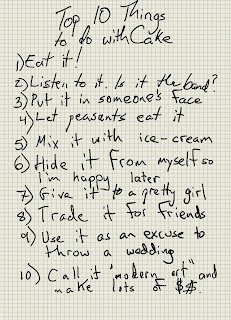 Top 10 Things
to do with Cake
1) Eat it!
2) Listen to it. Is it the band?
3) Put it in someone's face
4) Let peasants eat it
5) Mix it with ice-cream
6) Hide it from myself so
I'm happy later
7) Give it to a pretty girl
8) Trade it for friends
9) Use it as an excuse to
throw a wedding
10) Call it "modern art" and
make lots of $$.